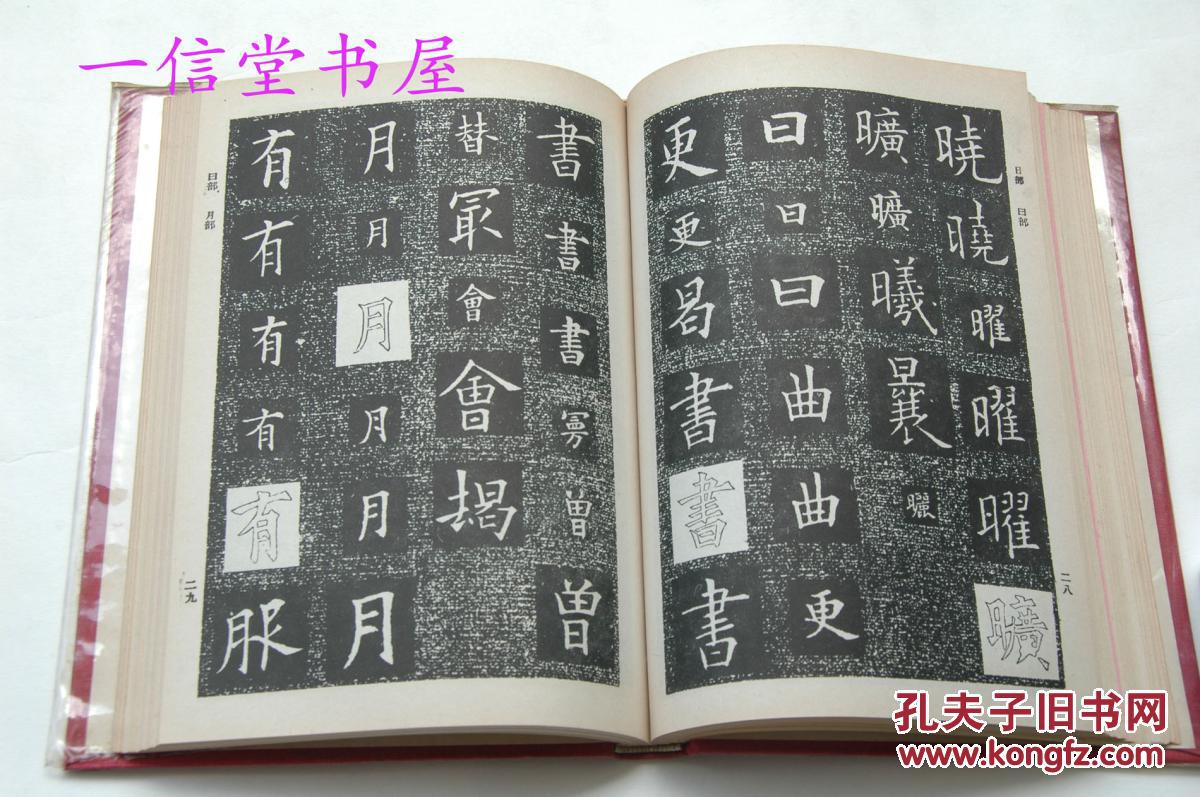 一信堂书屋
日部 曰部
曉曉曜曜曜曠
曠曠曦曩曬
曰曰曰曲曲更
更更曷書書書
二八
書書書曾曾
替冣會會朅
月月月月月月
有有有有有服
曰部 月部
二九
孔夫子旧书网
www.kongfz.com